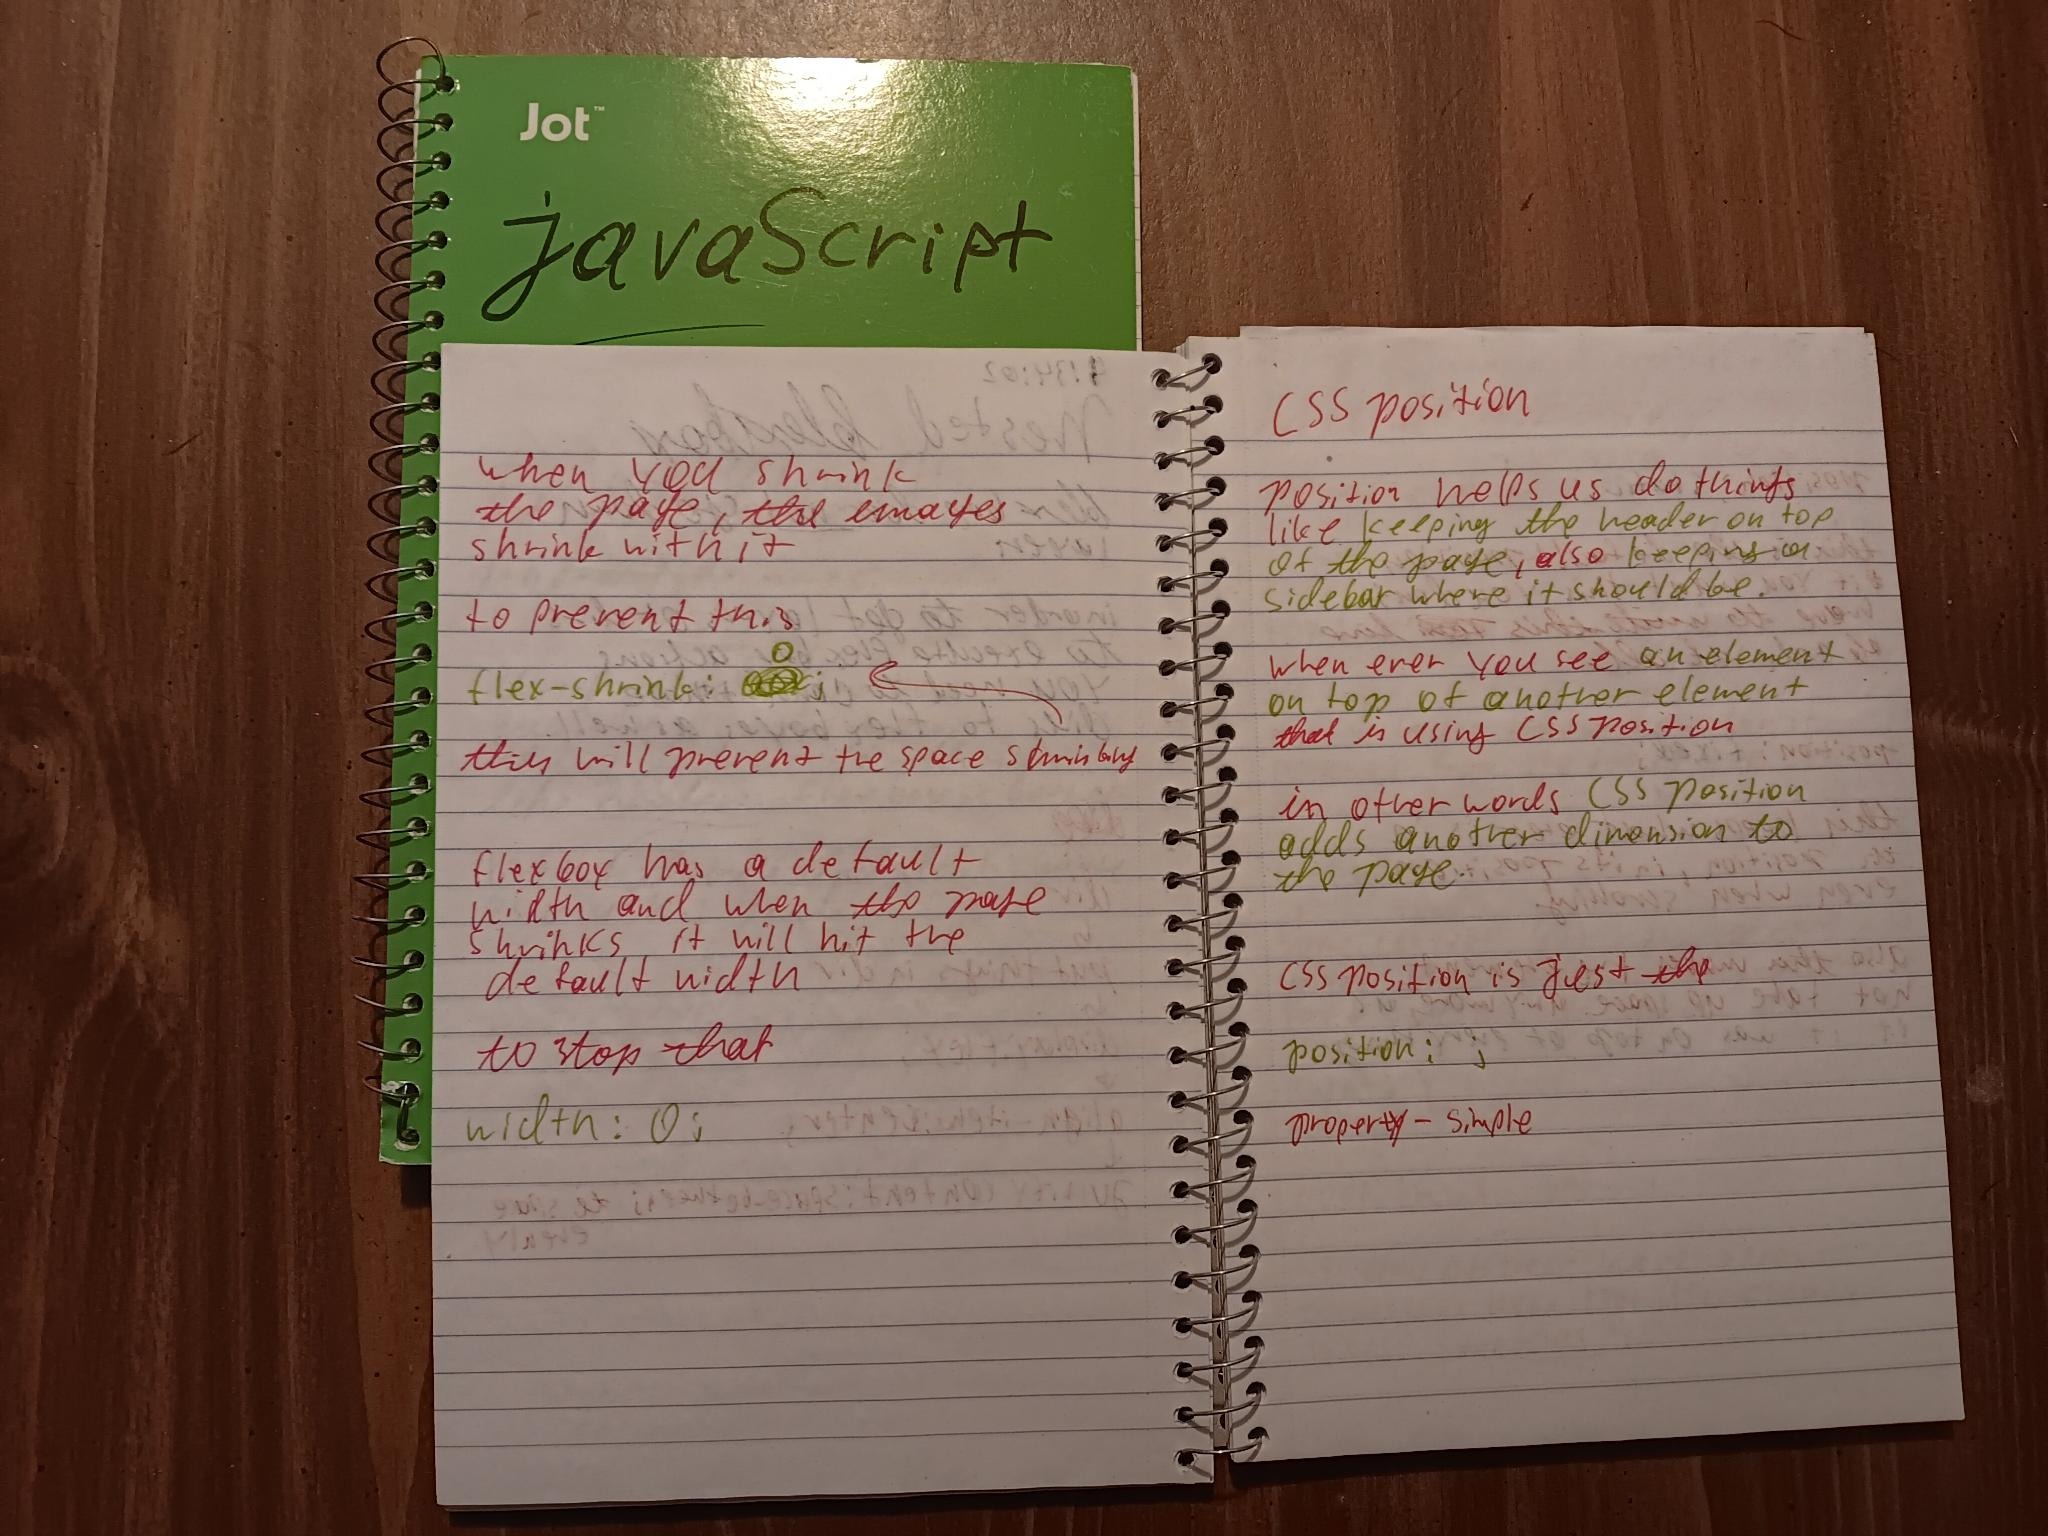 Jot™
javaScript
when you shrink
the page, the emages
shrink with it
to prevent this
0
flex-shrink: ;
this will prevent the space shrinking
flexbox has a default
width and when the page
shrinks it will hit the
default width
to stop that
width: 0;
CSS position
position helps us do things
like keeping the header on top
of the page, also keeping a
sidebar where it should be.
when ever you see an element
on top of another element
that is using CSS position
in other words CSS position
adds another dimension to
the page.
CSS position is just the
position: ;
property - simple